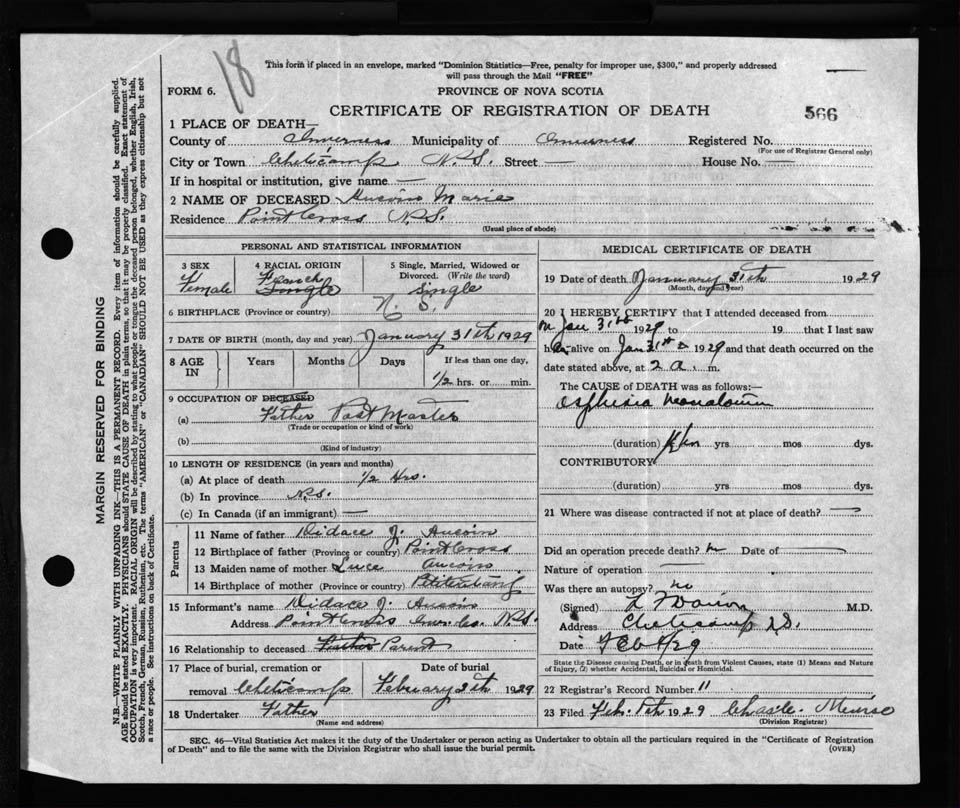 18
This form if placed in an envelope, marked "Dominion Statistics—Free, penalty for improper use, $300," and properly addressed
will pass through the Mail "FREE"
FORM 6. PROVINCE OF NOVA SCOTIA
CERTIFICATE OF REGISTRATION OF DEATH 566
1 PLACE OF DEATH—
County of Inverness Municipality of Inverness Registered No.
(For use of Registrar General only)
City or Town Cheticamp N.S. Street — House No. —
If in hospital or institution, give name —
2 NAME OF DECEASED Aucoin Marie
Residence Point Cross N.S.
(Usual place of abode)
PERSONAL AND STATISTICAL INFORMATION
3 SEX 4 RACIAL ORIGIN 5 Single, Married, Widowed or
Divorced. (Write the word)
Female French Single Single
6 BIRTHPLACE (Province or country) N. S.
7 DATE OF BIRTH (month, day and year) January 31th 1929
8 AGE IN Years Months Days If less than one day,
1/2 hrs. or min.
9 OCCUPATION OF DECEASED
(a) Father Post Master
(Trade or occupation or kind of work)
(b)
(Kind of industry)
10 LENGTH OF RESIDENCE (in years and months)
(a) At place of death 1/2 Hrs.
(b) In province N.S.
(c) In Canada (if an immigrant) —
Parents
11 Name of father Didace J. Aucoin
12 Birthplace of father (Province or country) Point Cross
13 Maiden name of mother Luce Aucoin
14 Birthplace of mother (Province or country) Petit Etang
15 Informant's name Didace J. Aucoin
Address Point Cross Inv. Co. N.S.
16 Relationship to deceased Father Parent
17 Place of burial, cremation or Date of burial
removal Cheticamp February 2th 1929
18 Undertaker Father
(Name and address)
MEDICAL CERTIFICATE OF DEATH
19 Date of death January 31th 1929
(Month, day and year)
20 I HEREBY CERTIFY that I attended deceased from
on Jan 31st 1929 to 19 that I last saw
her alive on Jan 31st 1929 and that death occurred on the
date stated above, at 2 a. m.
The CAUSE OF DEATH was as follows:—
Asphixia neonatorum
(duration) yrs mos dys.
CONTRIBUTORY
(duration) yrs mos dys.
21 Where was disease contracted if not at place of death? —
Did an operation precede death? Date of —
Nature of operation —
Was there an autopsy? no
(Signed) M.D.
Address Cheticamp N.S.
Date Feb
State the Disease causing Death, or in death from Violent Causes, state (1) Means and Nature
of Injury, (2) whether Accidental, Suicidal or Homicidal.
22 Registrar's Record Number 11
23 Filed Feb. 1929
(Division Registrar)
SEC. 46—Vital Statistics Act makes it the duty of the Undertaker or person acting as Undertaker to obtain all the particulars required in the "Certificate of Registration
of Death" and to file the same with the Division Registrar who shall issue the burial permit. (OVER)
MARGIN RESERVED FOR BINDING
N.B.—WRITE PLAINLY WITH UNFADING INK—THIS IS A PERMANENT RECORD. Every item of information should be carefully supplied.
AGE should be stated EXACTLY. PHYSICIANS should STATE CAUSE OF DEATH in plain terms, so that it may be properly classified. Exact statement of
OCCUPATION is very important. RACIAL ORIGIN will be described by stating to what people or tongue the deceased person belonged, whether English, Irish,
Scotch, French, German, Russian, Ruthenian, etc. The terms "AMERICAN" or "CANADIAN" SHOULD NOT BE USED as they express citizenship but not
a race or people. See instructions on back of Certificate.